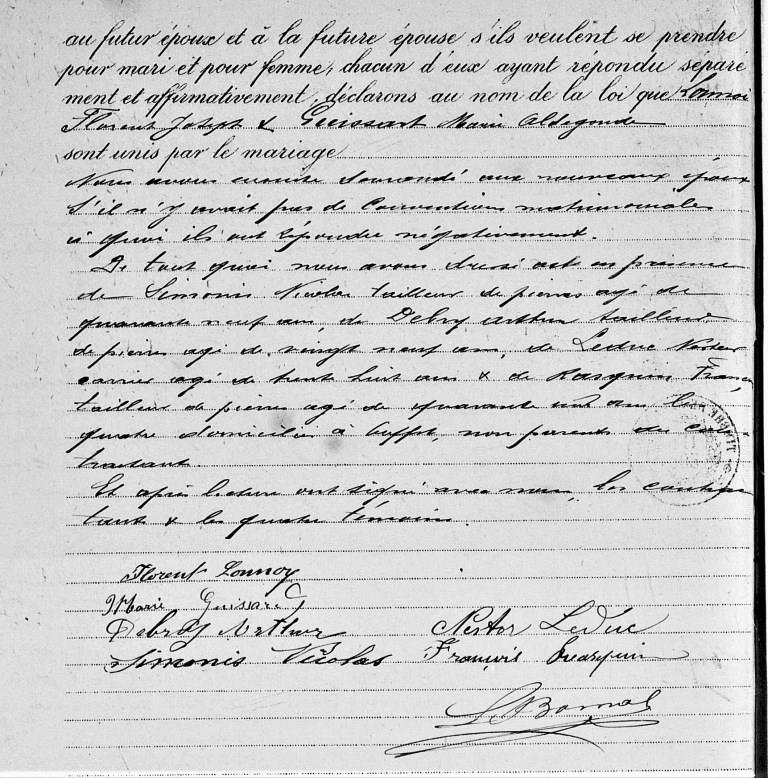 au futur époux et à la future épouse s'ils veulent se prendre
pour mari et pour femme, chacun d'eux ayant répondu séparé
ment et affirmativement, déclarons au nom de la loi que
Florent Joseph & Guissart Marie Aldegonde
sont unis par le mariage
Nous avons ensuite demandé aux nouveaux époux
S'il n'y avait pas de Conventions matrimoniales
à quoi ils ont répondu négativement.
De tout quoi nous avons dressé acte en présence
de Simonis Nicolas tailleur de pierres agé de
quarante neuf ans, de Debry Arthur tailleur
de pierres agé de vingt neuf ans, de Leduc Nestor
carrier agé de trente huit ans & de Rasquin François
tailleur de pierres agé de quarante ans les
quatre domiciliés à non parents des con
tractant.
Et après lecture ont signé avec nous, les contrac
tants & les quatre témoins.
Florent Lannoy
Marie Guissart
Debry Arthur Nestor Leduc
Simonis Nicolas François Rasquin